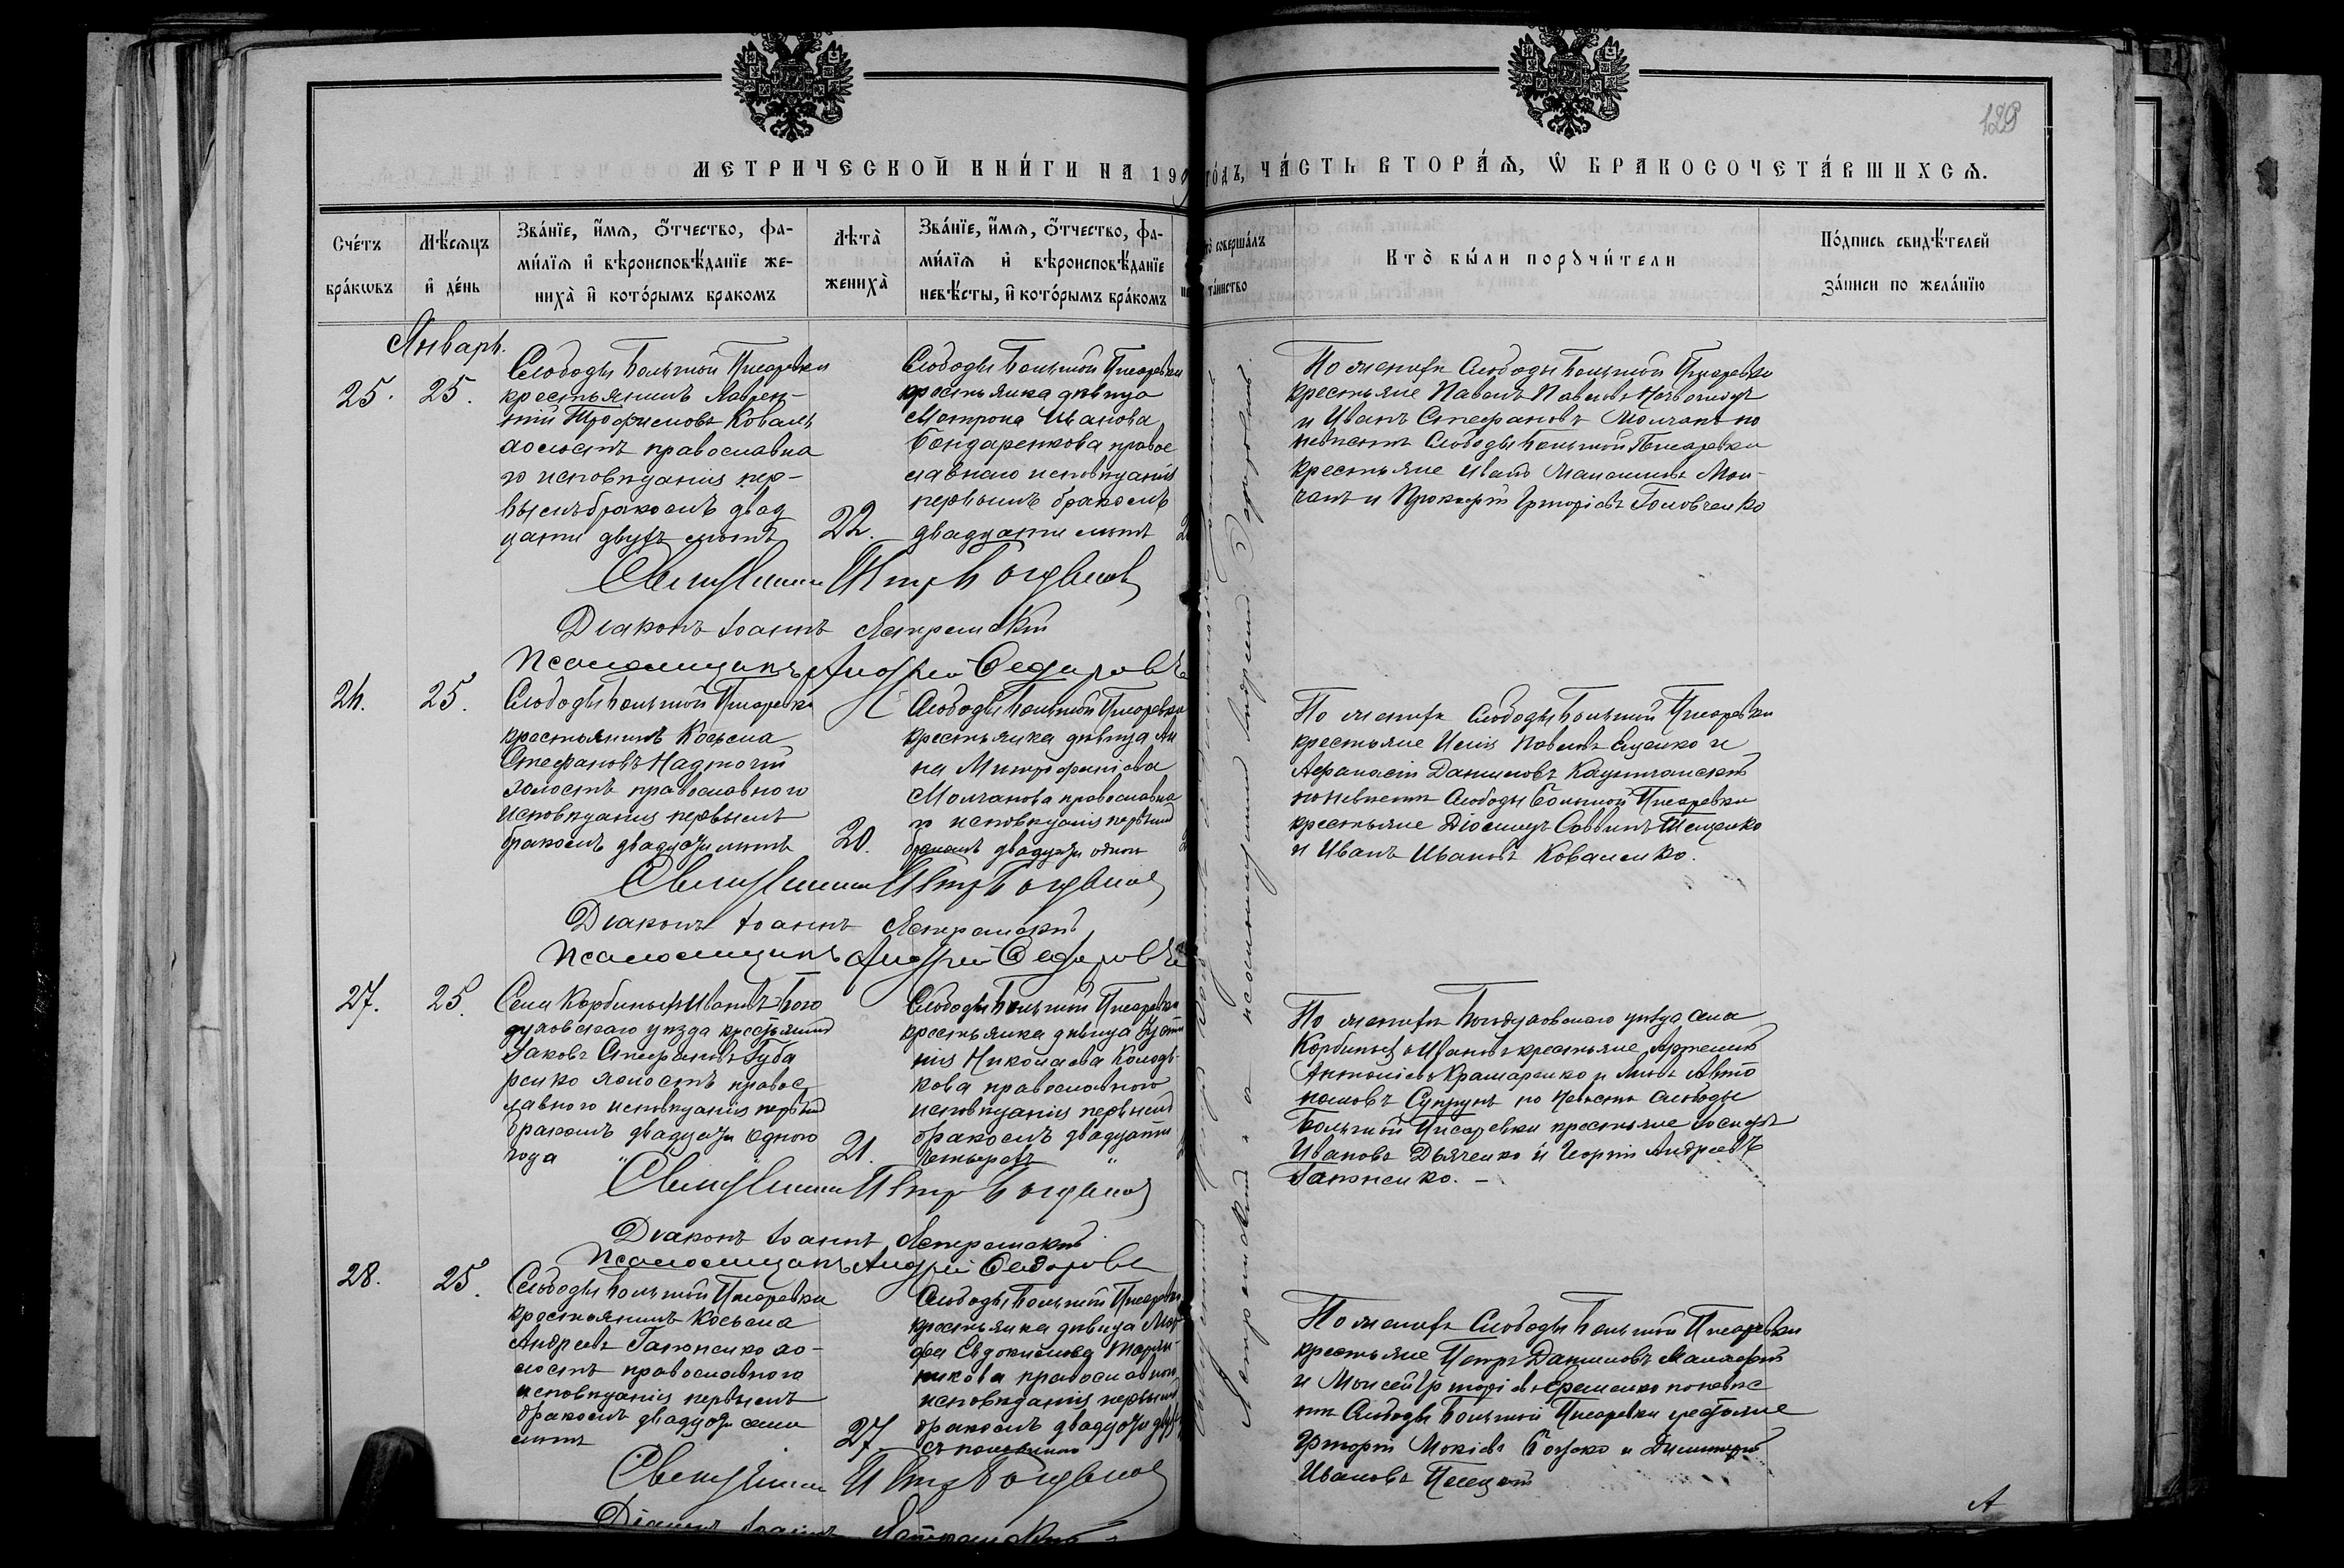 129
МЕТРИЧЕСКОЙ КНИ́ГИ НА 190 го́дъ, ЧА́СТЬ ВТОРА́Ѧ, Ѡ҆ БРАКОСОЧЕТА́ВШИХСѦ.
Сче́тъ бра́кѡвъ
Мѣ́сѧцъ и҆ де́нь
Зва́нїе, и҆́мѧ, ѻ҆́тчество, фа-
ми́лїѧ и҆ вѣроисповѣ́данїе же-
ниха̀ и҆ кото́рымъ бракомъ
Лѣта̀ жениха̀
Зва́нїе, и҆́мѧ, ѻ҆́тчество, фа-
ми́лїѧ и҆ вѣроисповѣ́данїе
невѣ́сты, и҆ кото́рымъ бра́комъ
то̀ соверша́лъ
та́инство
Кто̀ бы́ли порꙋчи́тели
По́дпись свидѣ́телей
за́писи по жела́нїю
Январь.
25. 25.
Слободы Большой Писаревки
крестьянинъ Лаврен-
тій Трофимовъ Коваль
холостъ православна
го исповѣданія пер-
вымъ бракомъ двад
цати двухъ лѣтъ
22.
Слободы Большой Писаревки
крестьянка дѣвица
Матрона Иванова
Бондаренкова правос
лавнаго исповѣданія
первымъ бракомъ
двадцати лѣтъ
По женихѣ Слободы Большой Писаревки
крестьяне Павелъ Павловъ
и Иванъ Стефановъ Молчанъ по
невѣстѣ Слободы Большой Писаревки
крестьяне Иванъ Мол-
чанъ и Прокофій Григоріевъ Головченко
Священникъ Петръ Богдановъ
Діаконъ Іоаннъ Ястремскій
Псаломщикъ Андрей Федоровъ
26. 25.
Слободы Большой Писаревки
крестьянинъ Косьма
Стефановъ Надточій
холостъ православнаго
исповѣданія первымъ
бракомъ двадцати лѣтъ
20.
Слободы Большой Писаревки
крестьянка дѣвица Ан
на Митрофанова
Молчанова православна
го исповѣданія первымъ
бракомъ двадцати одного
По женихѣ Слободы Большой Писаревки
крестьяне Илія Павловъ Ященко и
Афанасій Даниловъ
по невѣстѣ Слободы Большой Писаревки
крестьяне Діомидъ Саввинъ Тещенко
и Иванъ Ивановъ Коваленко.
Священникъ Петръ Богдановъ
Діаконъ Іоаннъ Ястремскій
Псаломщикъ Андрей Федоровъ
27. 25.
Села Корбиныхъ Ивановъ Бого
духовскаго уѣзда крестьянинъ
Яковъ Стефановъ Губа
ренко холостъ правос
лавнаго исповѣданія первымъ
бракомъ двадцати одного
года
21.
Слободы Большой Писаревки
крестьянка дѣвица Усти
нія Николаева Колодь-
кова православнаго
исповѣданія первымъ
бракомъ двадцати
четырехъ
По женихѣ Богодуховскаго уѣзда села
Корбиныхъ Ивановъ крестьяне Артемій
Антоніевъ Крамаренко и Левъ Авто
номовъ Супрунъ по невѣстѣ слободы
Большой Писаревки крестьяне Іосифъ
Ивановъ Дьяченко и Георгій Андреевъ
Гапоненко. —
Священникъ Петръ Богдановъ
Діаконъ Іоаннъ Ястремскій
Псаломщикъ Андрей Федоровъ
28. 25.
Слободы Большой Писаревки
крестьянинъ Косьма
Андреевъ Гапоненко хо-
лостъ православнаго
исповѣданія первымъ
бракомъ двадцати семи
лѣтъ
27.
Слободы Большой Писаревки
крестьянка дѣвица Мар
ѳа Евдокимова
православнаго
исповѣданія первымъ
бракомъ двадцати двухъ
съ половиною
По женихѣ Слободы Большой Писаревки
крестьяне Петръ Даниловъ
и Моисей Григоріевъ Еременко по невѣс
тѣ Слободы Большой Писаревки крестьяне
Григорій Мокіевъ и Димитрій
Ивановъ
Священникъ Петръ Богдановъ
Діаконъ Іоаннъ Ястремскій